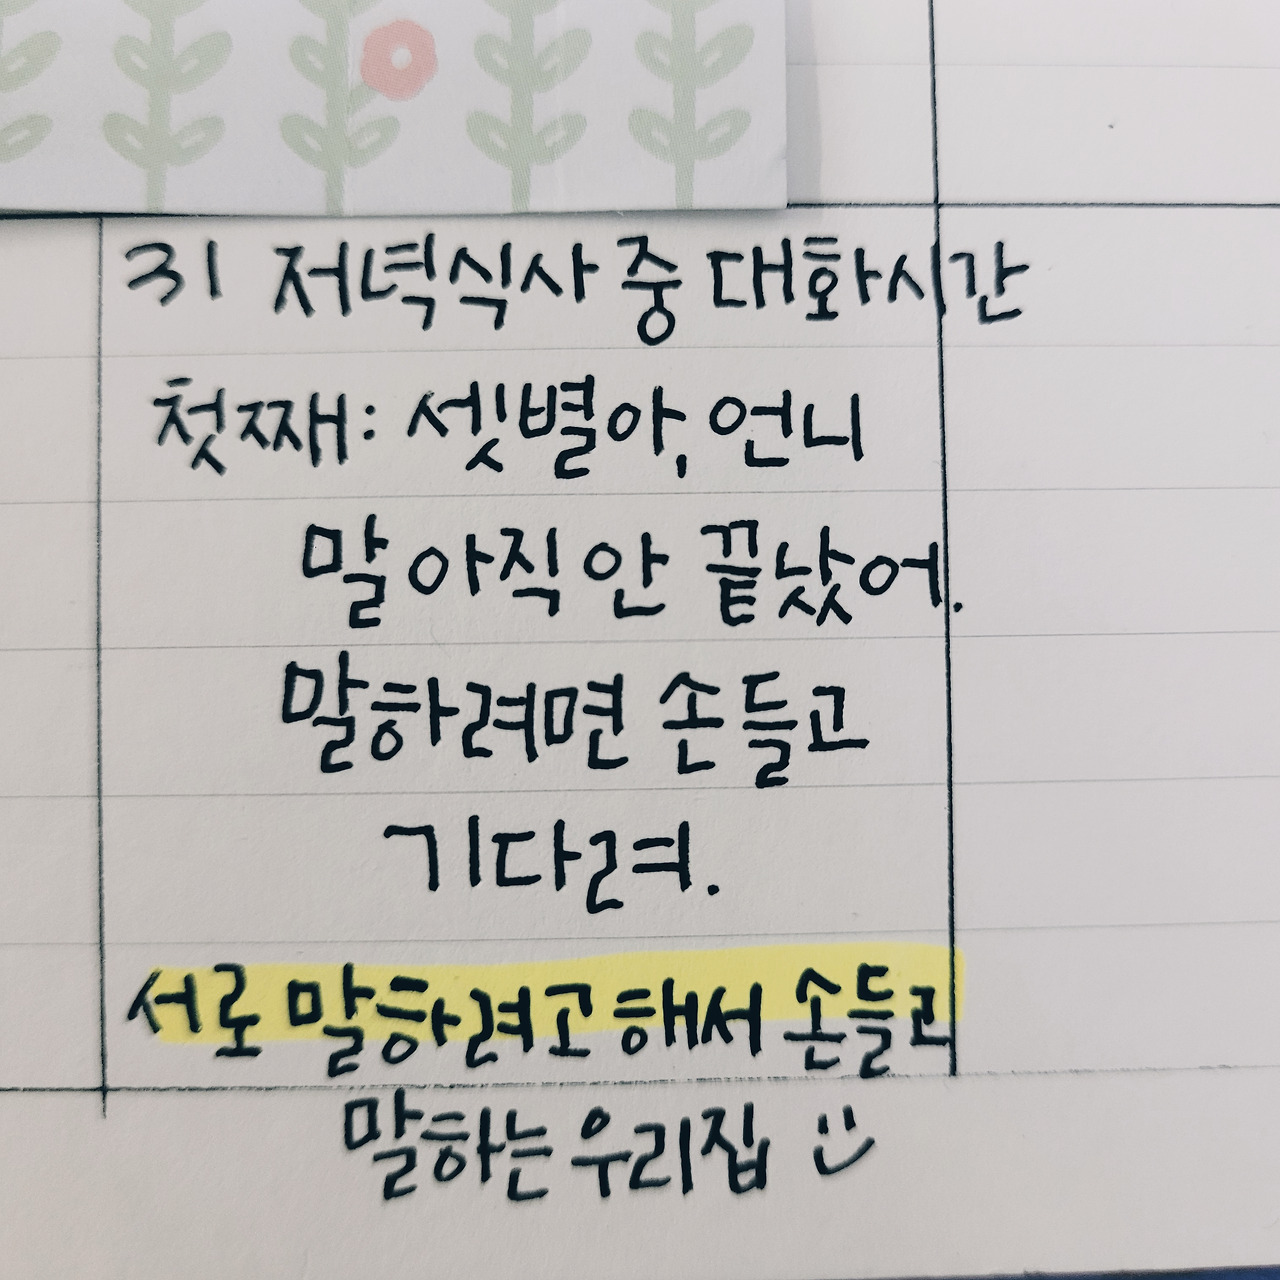 31 저녁식사 중 대화시간
첫째: 셋별아, 언니
말 아직 안 끝났어.
말하려면 손들고
기다려.
서로 말하려고 해서 손들고
말하는 우리집 :)